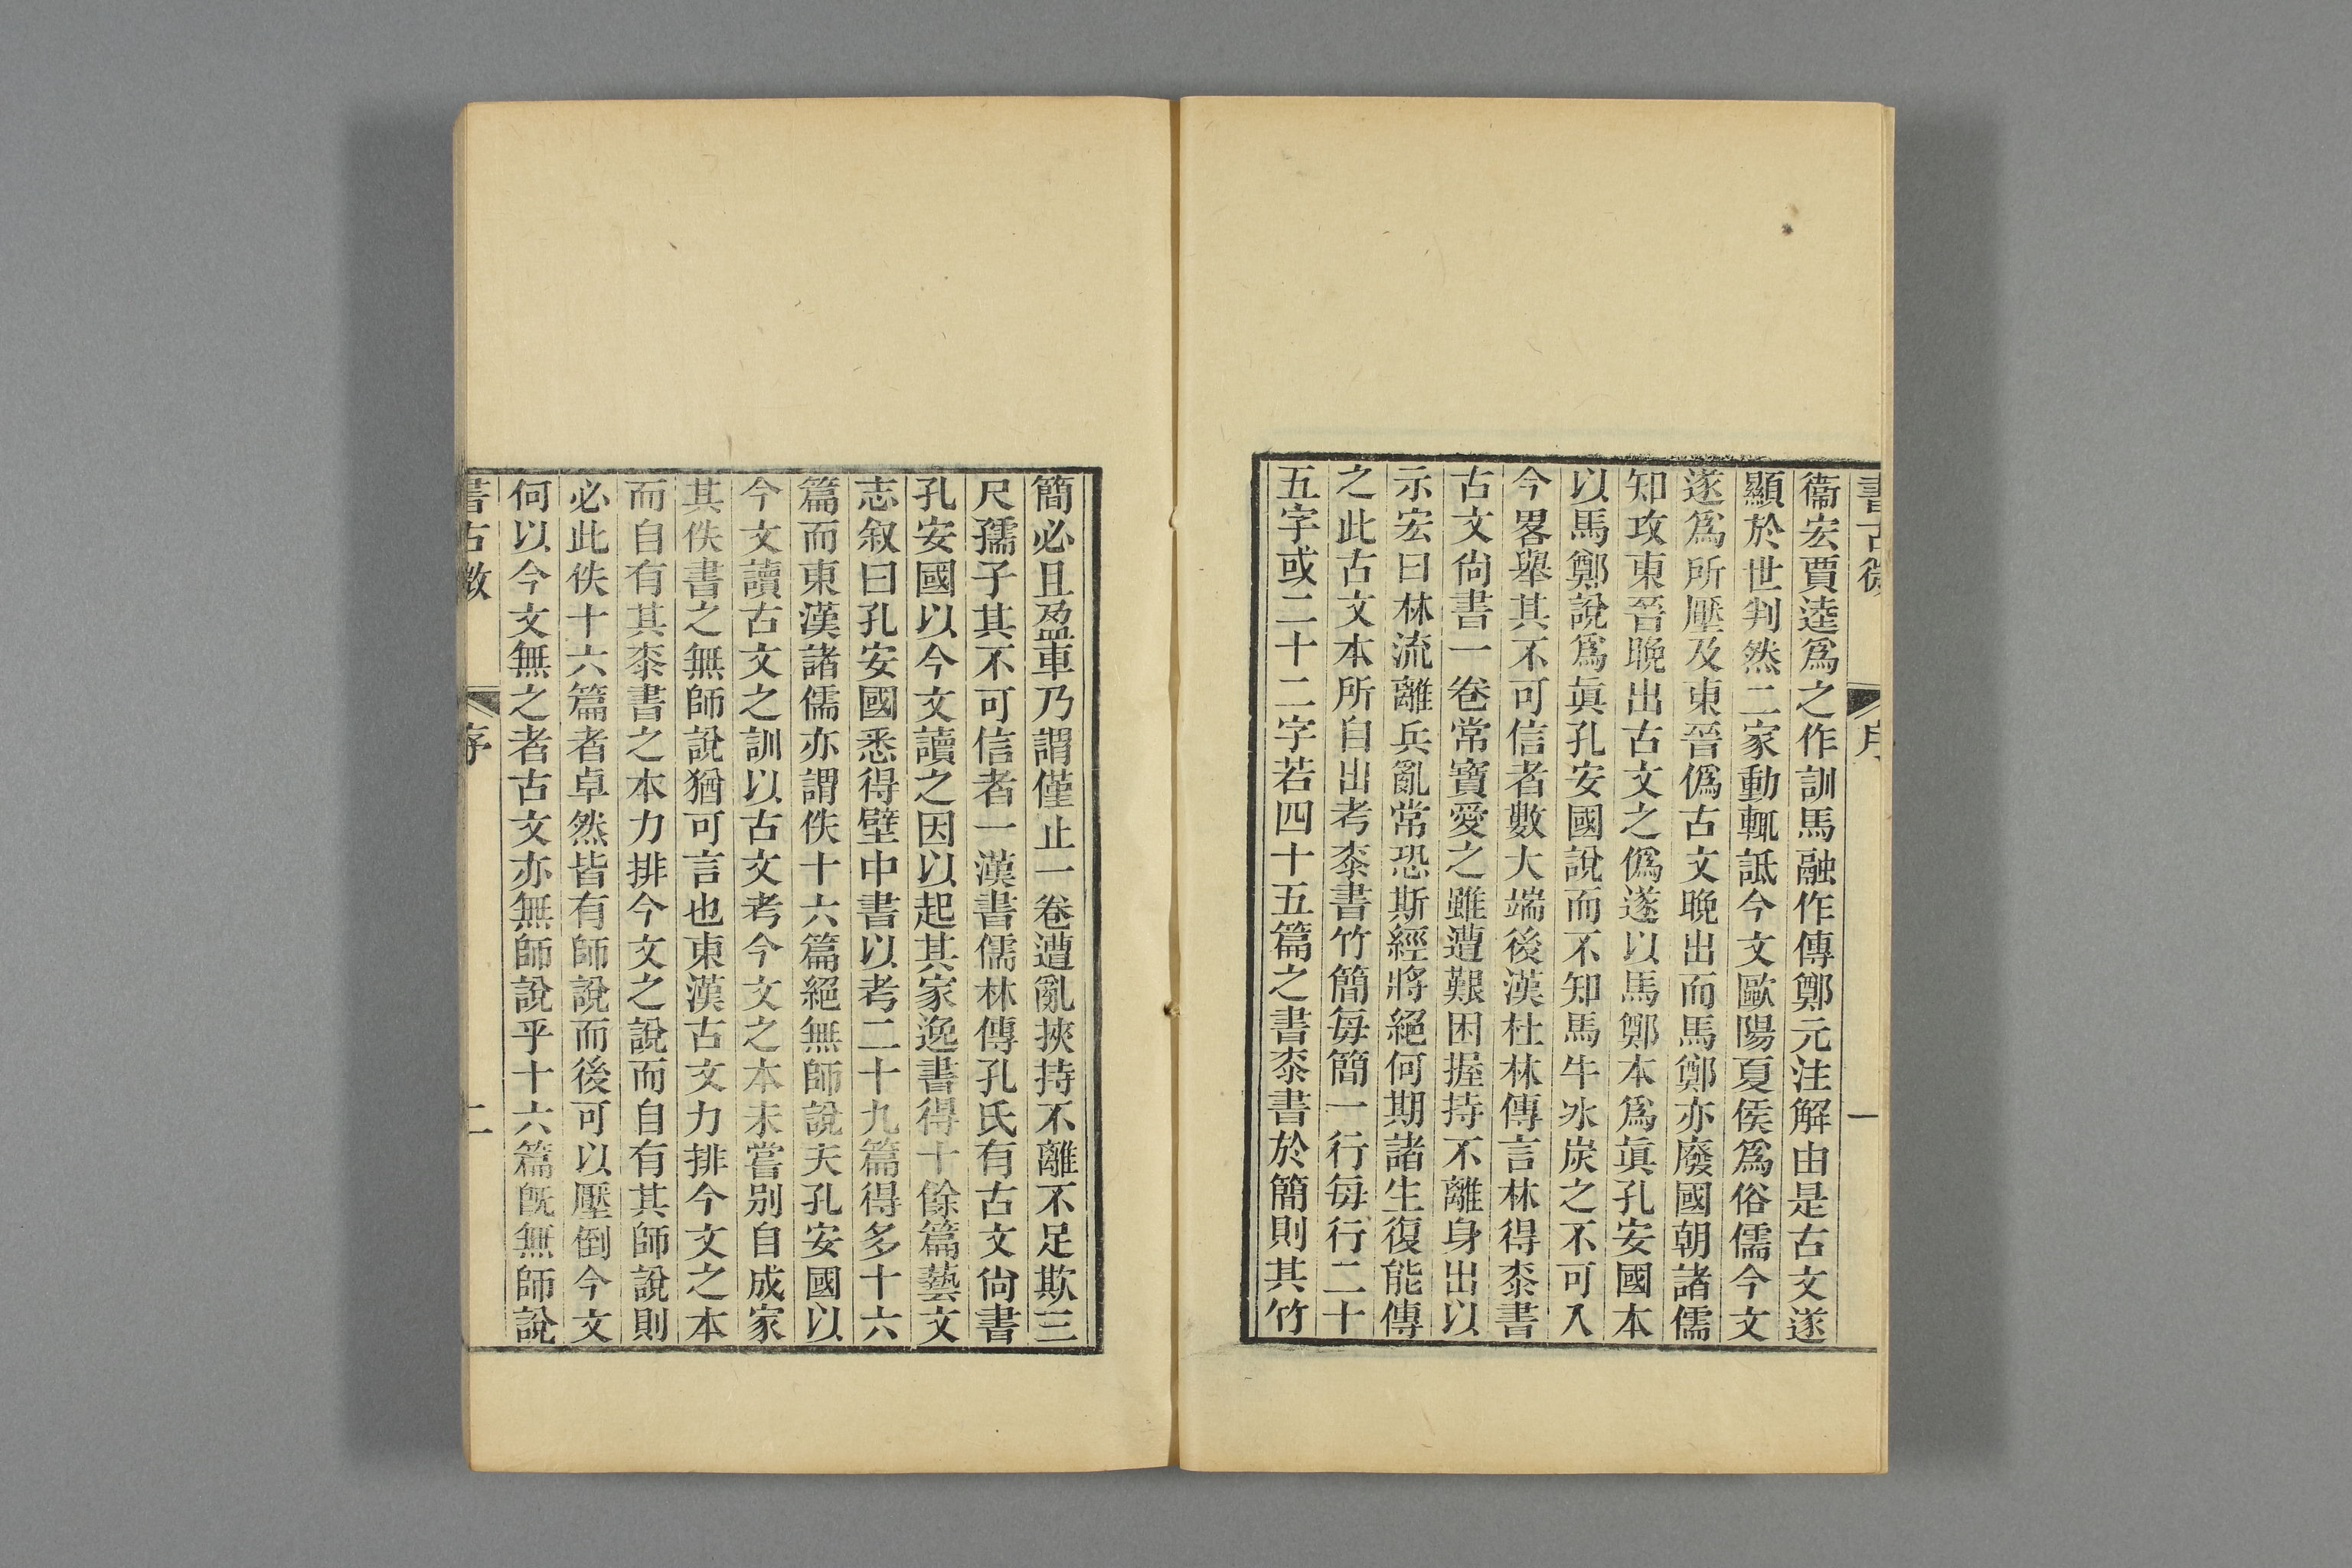 書古微 序 一
衞宏賈逵爲之作訓馬融作傳鄭元注解由是古文遂
顯於世判然二家動輒詆今文歐陽夏侯爲俗儒今文
遂爲所壓及東晉僞古文晚出而馬鄭亦廢國朝諸儒
知攻東晉晚出古文之僞遂以馬鄭本爲眞孔安國本
以馬鄭說爲眞孔安國說而不知馬牛冰炭之不可入
今畧舉其不可信者數大端後漢杜林傳言林得桼書
古文尙書一卷常寶愛之雖遭艱困握持不離身出以
示宏曰林流離兵亂常恐斯經將絕何期諸生復能傳
之此古文本所自出考桼書竹簡每簡一行每行二十
五字或二十二字若四十五篇之書桼書於簡則其竹
簡必且盈車乃謂僅止一卷遭亂挾持不離不足欺三
尺孺子其不可信者一漢書儒林傳孔氏有古文尙書
孔安國以今文讀之因以起其家逸書得十餘篇藝文
志叙曰孔安國悉得壁中書以考二十九篇得多十六
篇而東漢諸儒亦謂佚十六篇絕無師說夫孔安國以
今文讀古文之訓以古文考今文之本未嘗别自成家
其佚書之無師說猶可言也東漢古文力排今文之本
而自有其桼書之本力排今文之說而自有其師說則
必此佚十六篇者卓然皆有師說而後可以壓倒今文
何以今文無之者古文亦無師說乎十六篇旣無師說
書古微 序 二